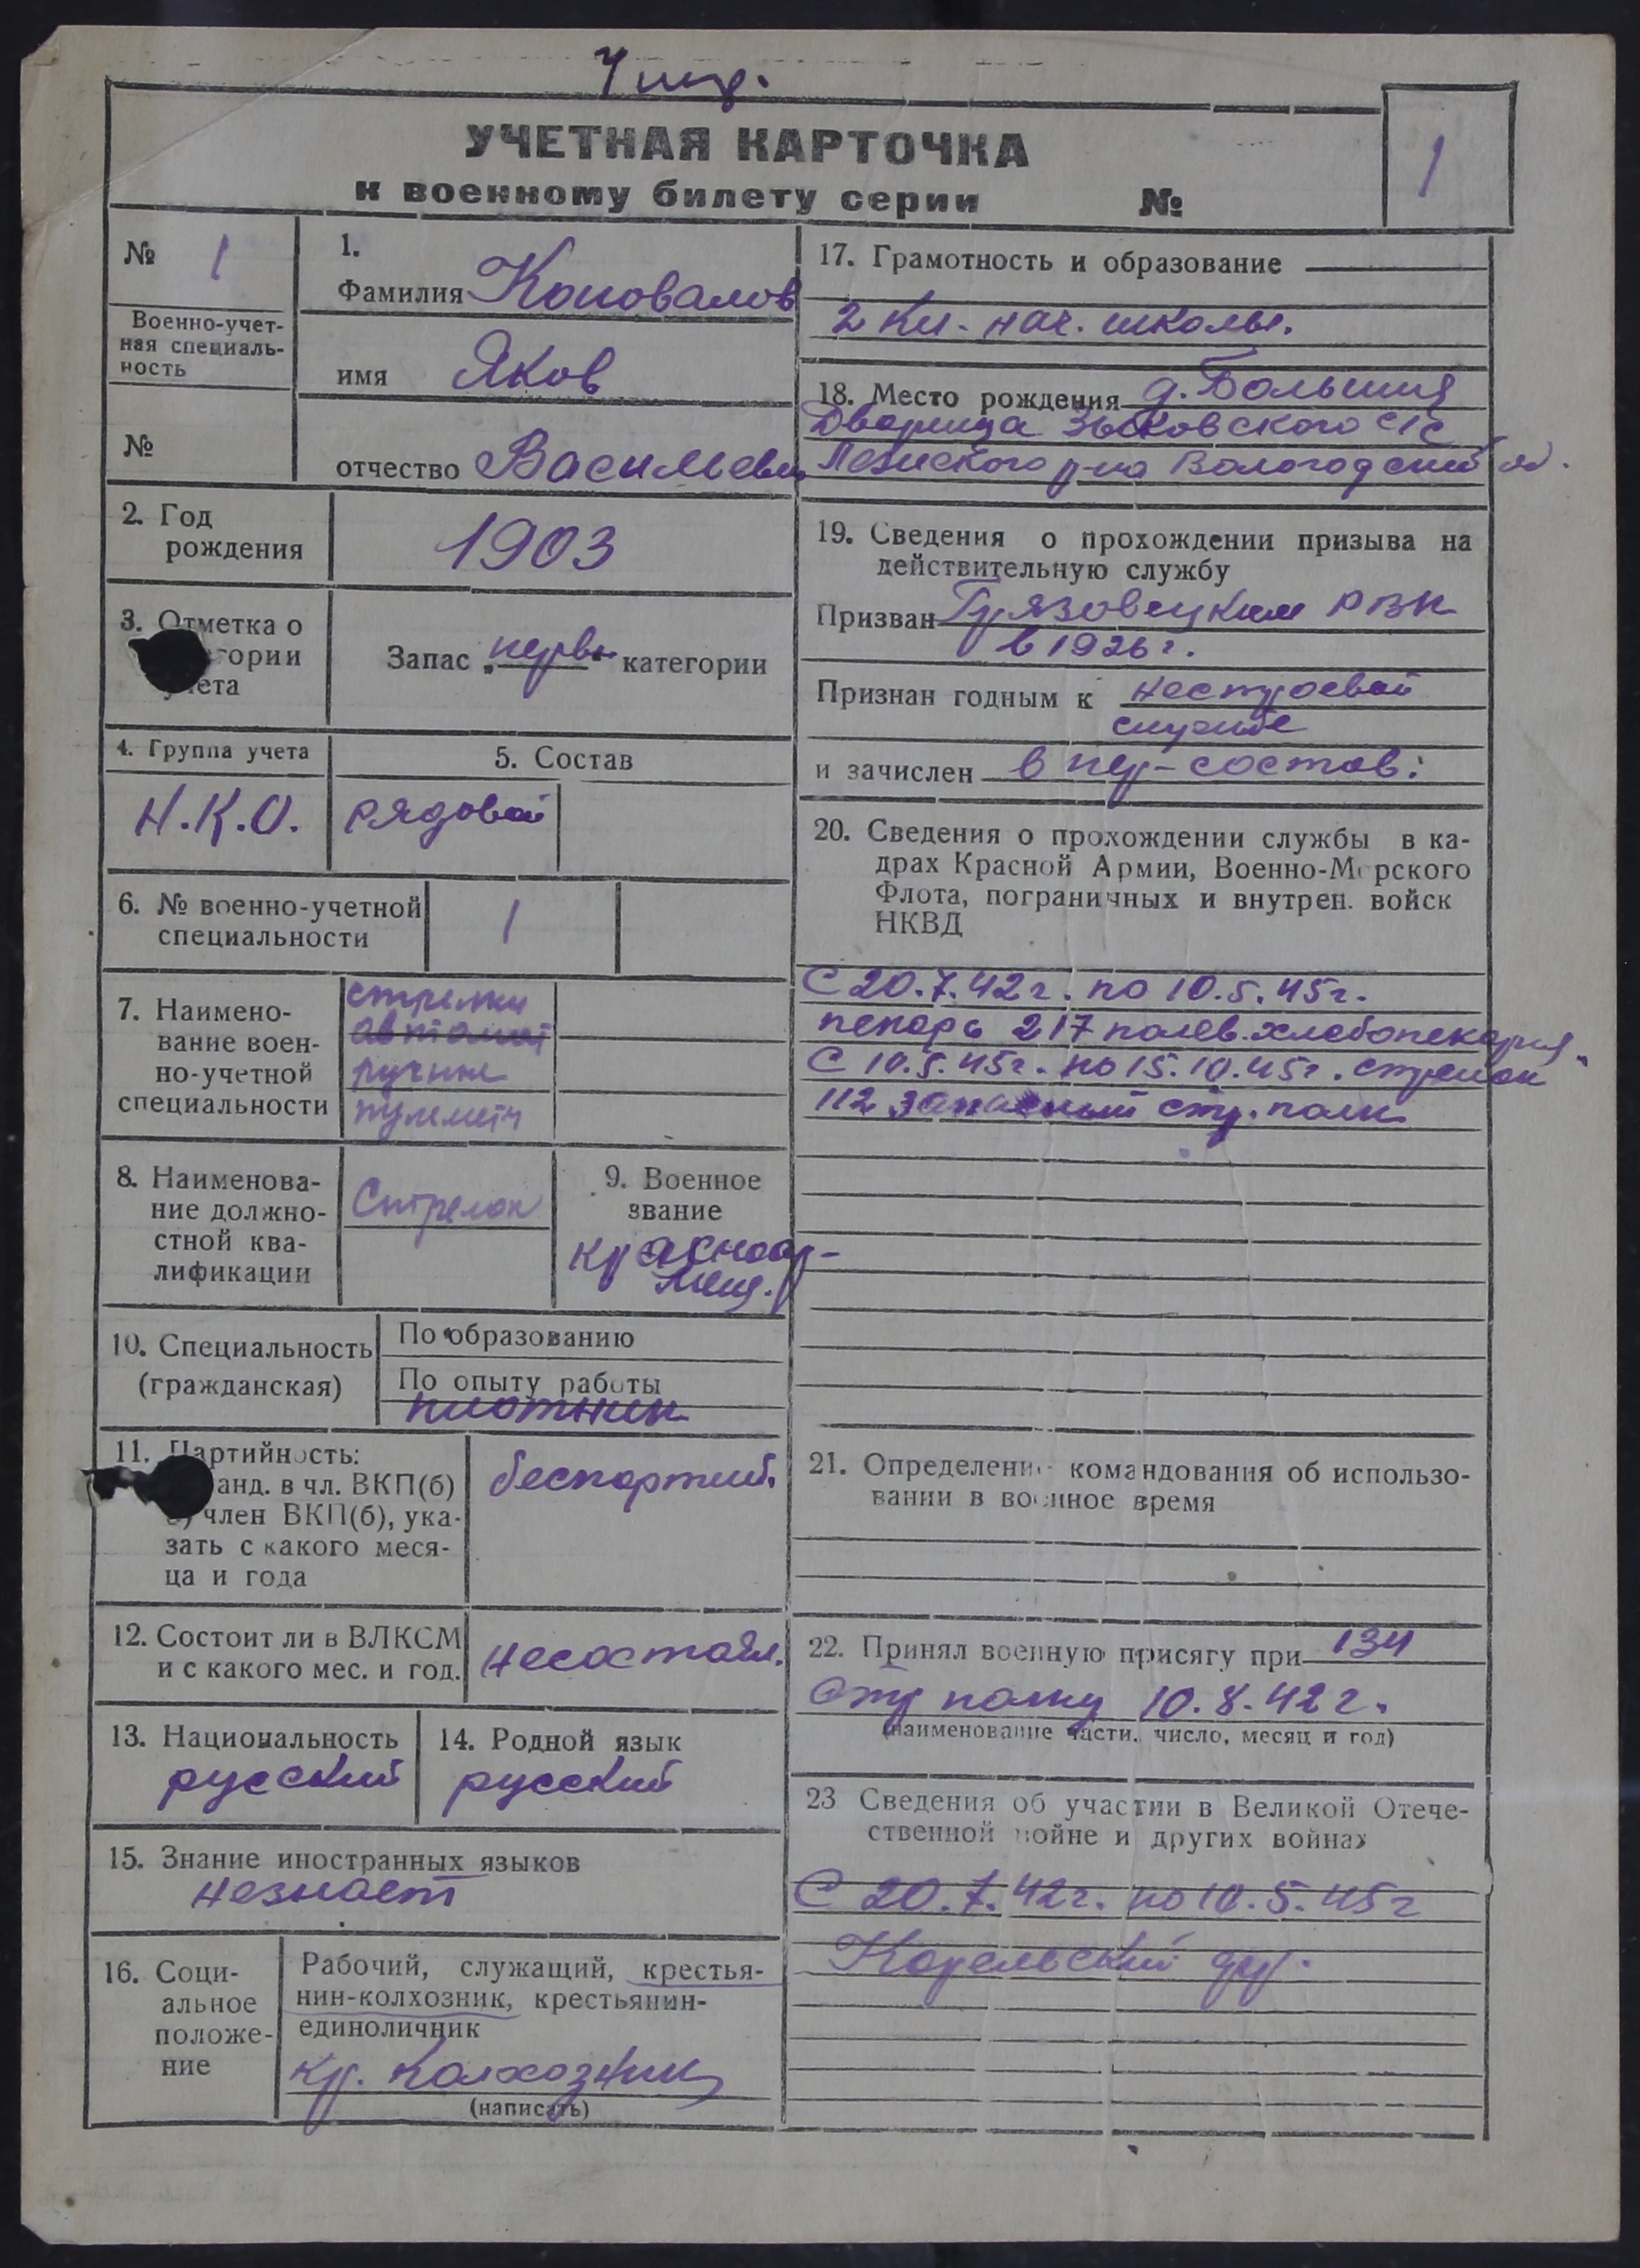 УЧЕТНАЯ КАРТОЧКА
к военному билету серии №
1
№ 1
Военно-учет-
ная специаль-
ность
№
1.
Фамилия Коновалов
имя Яков
отчество Васильевич
2. Год
рождения
1903
3. Отметка о
гории
учета
Запас „перв." категории
4. Группа учета
Н.К.О.
5. Состав
рядовой
6. № военно-учетной
специальности
1
7. Наимено-
вание воен-
но-учетной
специальности
стрелки
автомат
ручные
пулемётч
8. Наименова-
ние должно-
стной ква-
лификации
Стрелок
9. Военное
звание
красноар-
меец.
10. Специальность
(гражданская)
По образованию
По опыту работы
плотник
11. Партийность:
канд. в чл. ВКП(б)
б) член ВКП(б), ука-
зать с какого меся-
ца и года
беспартий.
12. Состоит ли в ВЛКСМ
и с какого мес. и год.
несостоял.
13. Национальность
русский
14. Родной язык
русский
15. Знание иностранных языков
незнает
16. Соци-
альное
положе-
ние
Рабочий, служащий, крестья-
нин-колхозник, крестьянин-
единоличник
кр. колхозник
(написать)
17. Грамотность и образование
2 кл. нач. школы.
18. Место рождения д. Большия
Дворища Зыковского с/с
Лежского р-на Вологодский
19. Сведения о прохождении призыва на
действительную службу
Призван Грязовецким РВК
в 1926 г.
Признан годным к нестроевой
службе
и зачислен в пер-состав:
20. Сведения о прохождении службы в ка-
драх Красной Армии, Военно-Морского
Флота, пограничных и внутрен. войск
НКВД
С 20.7.42г. по 10.5.45г.
пекарь 217 полев. хлебопекарня.
С 10.5.45г. по 15.10.45г. стрелок
112 запасный стр. полк
21. Определение командования об использо-
вании в военное время
22. Принял военную присягу при 134
стр полку 10.8.42г.
(наименование части, число, месяц и год)
23 Сведения об участии в Великой Отече-
ственной войне и других войнах
С 20.7.42г. по 10.5.45г
Карельский фр.